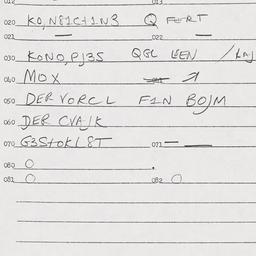 012 013
020 KO,N81C+1N3 Q FERT
021 — 022 —
030 KONO,PJ35 QGL EEN
040 MOX
050 DERVORCL F1N BOJM
060 DER CVAJK
070 G3StOKL8T 071 —
080 O
081 O 082 O